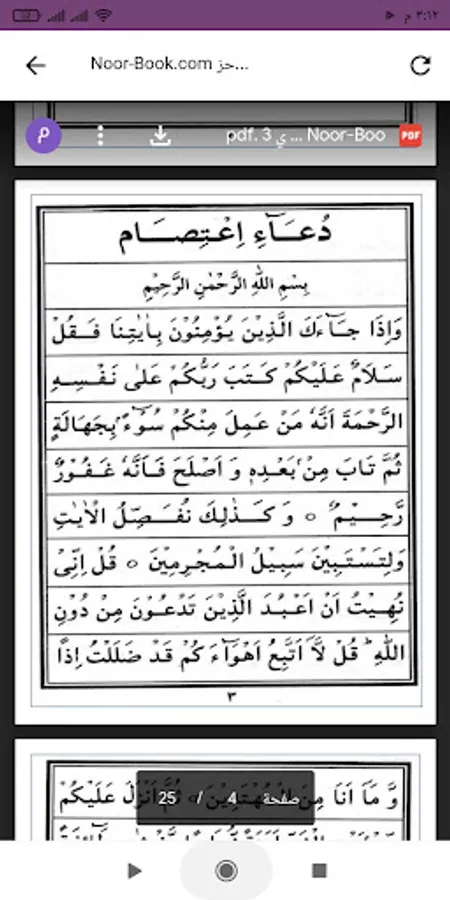 ٣:١٢ م
Noor-Book.com حز...
م
pdf. 3 ي ... Noor-Boo
PDF
دُعَــآءِ اِعْـتِـصَــام
بِسْمِ اللهِ الرَّحْمٰنِ الرَّحِيْمِ
وَاِذَا جَــآءَكَ الَّذِيْنَ يُؤْمِنُوْنَ بِاٰيٰتِنَا فَـقُلْ
سَـلَامٌ عَلَيْكُمْ كَـتَبَ رَبُّكُمْ عَلٰى نَفْـسِـهِ
الرَّحْمَةَ اَنَّهٗ مَنْ عَمِلَ مِنْكُمْ سُوْٓءًۢ بِجَهَالَةٍ
ثُمَّ تَابَ مِنْۢ بَعْـدِهٖ وَ اَصْلَحَ فَـاَنَّهٗ غَـفُـوْرٌ
رَّحِـيْـمٌ ○ وَ كَـذٰلِكَ نُفَـصِّلُ الْاٰيٰتِ
وَلِتَسْتَبِيْنَ سَبِيْلُ الْـمُجْرِمِيْنَ ○ قُلْ اِنِّىْ
نُهِيْتُ اَنْ اَعْبُـدَ الَّذِيْنَ تَدْعُـوْنَ مِنْ دُوْنِ
اللهِ ؕ قُلْ لَّاۤ اَتَّبِعُ اَهْوَآءَ كُمْ قَدْ ضَلَلْتُ اِذًا
٣
وَّ مَاۤ اَنَا مِنَ الْمُهْتَدِيْنَ ○ ثُمَّ اَنْزَلَ عَلَيْكُمْ
صفحة 4 / 25